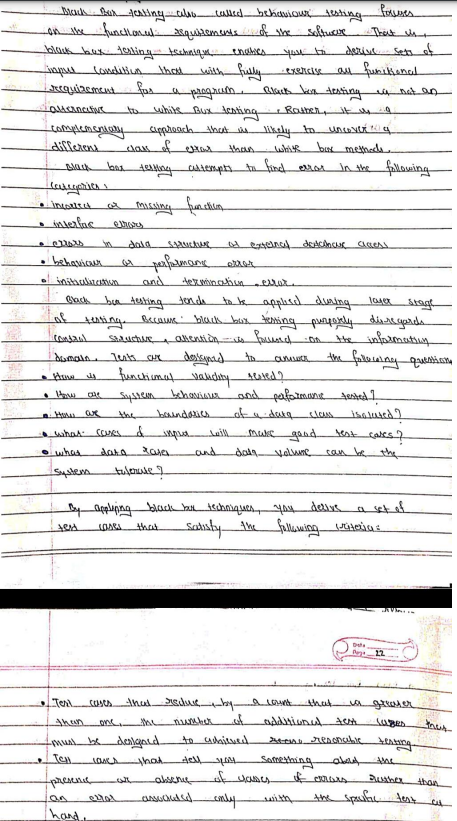 Black Box testing also called behaviour testing focuses
on the functional requirements of the software. That is,
black box testing technique enables you to derive sets of
input condition that with fully exercise all functional
requirement for a program. Black box testing is not an
alternative to white Box testing. Rather, it is a
complementary approach that is likely to uncover a
different class of error than white box methods.
Black box testing attempts to find error in the following
categories:
• incorrect or missing function
• interface errors
• errors in data structure or external database access
• behaviour or performance error
• initialization and termination error.
Black box testing tends to be applied during later stage
of testing. Because black box testing purposely disregards
control structure, attention is focused on the information
domain. Tests are designed to answer the following question
• How is functional validity tested?
• How are system behaviour and performance tested?
• How are the boundaries of a data class isolated?
• what cases of input will make good test cases?
• what data rates and data volume can be the
system tolerate?
By applying black box techniques, you derive a set of
test cases that satisfy the following criteria:
Date
Page 22
• Test cases that reduce, by a count that is greater
than one, the number of additional test cases that
must be designed to achieved resonable testing
• Test cases that tell you something about the
presence or absence of classes of errors rather than
an error associated only with the specific test at
hand.